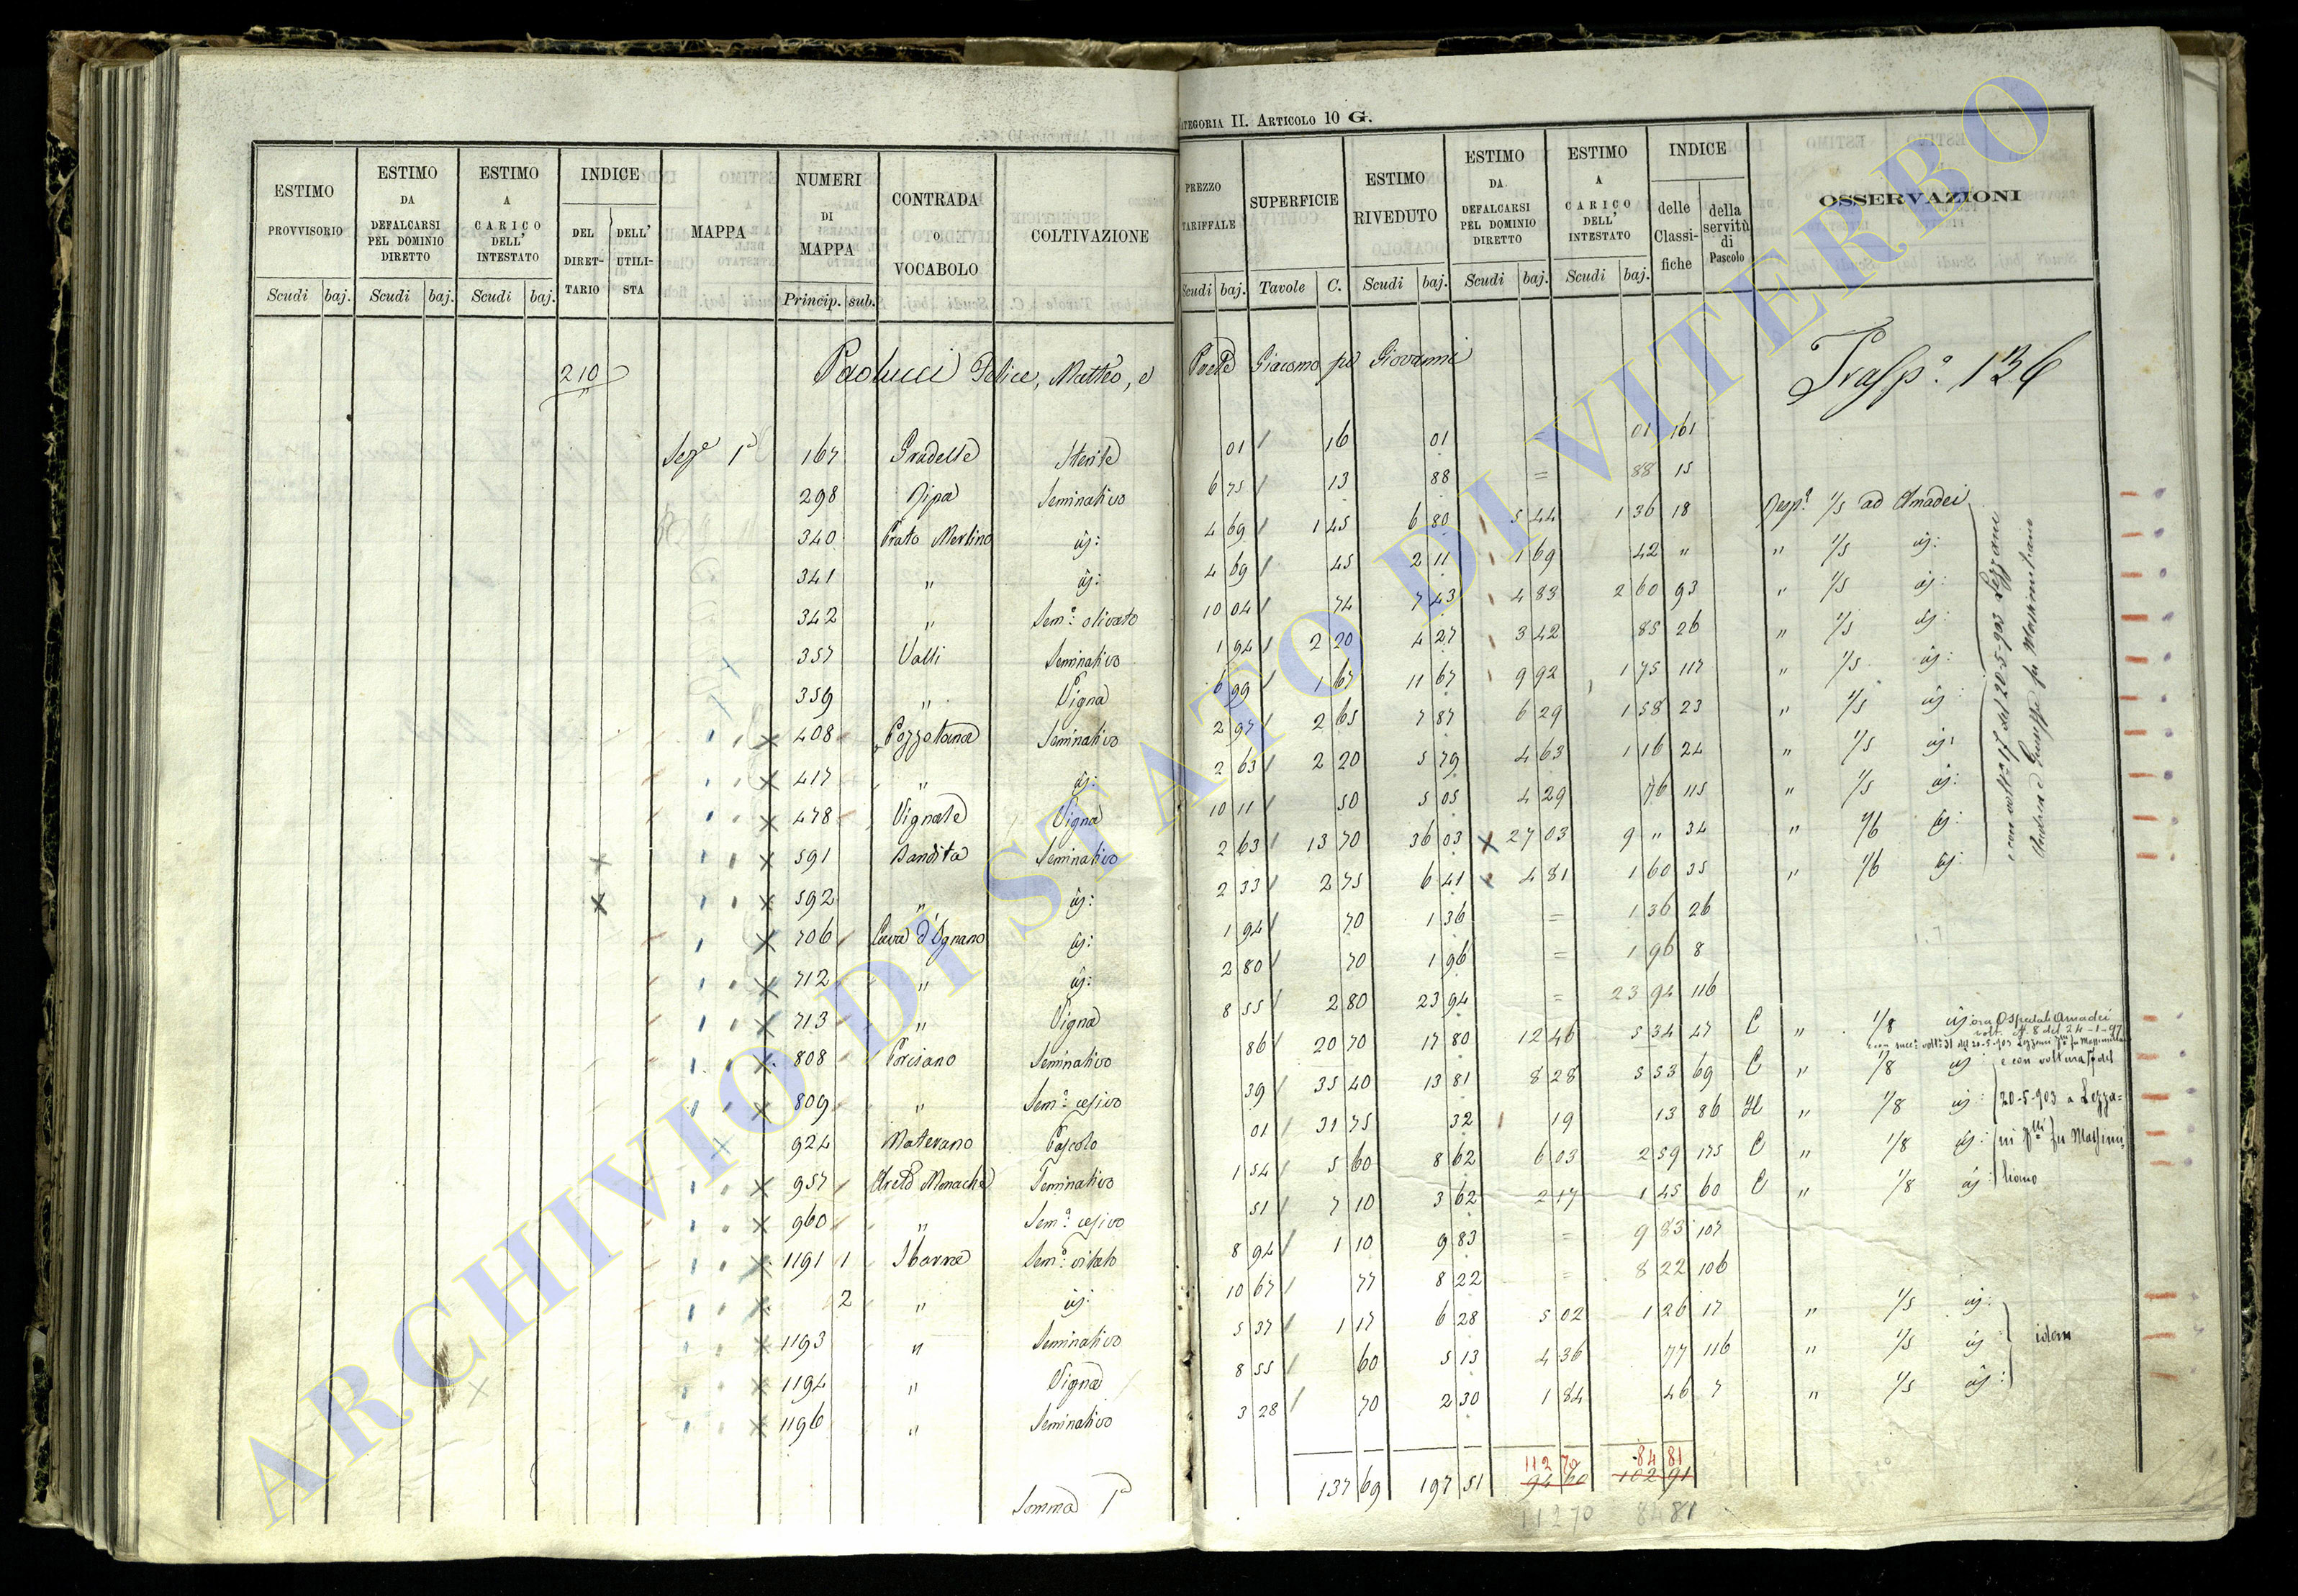 CATEGORIA II. ARTICOLO 10 G.
ESTIMO PROVVISORIO Scudi baj.
ESTIMO DA DEFALCARSI PEL DOMINIO DIRETTO Scudi baj.
ESTIMO A CARICO DELL' INTESTATO Scudi baj.
INDICE DEL DIRETTARIO DELL' UTILISTA
MAPPA
NUMERI DI MAPPA Princip. sub.
CONTRADA O VOCABOLO
COLTIVAZIONE
PREZZO TARIFFALE Scudi baj.
SUPERFICIE Tavole C.
ESTIMO RIVEDUTO Scudi baj.
ESTIMO DA DEFALCARSI PEL DOMINIO DIRETTO Scudi baj.
ESTIMO A CARICO DELL' INTESTATO Scudi baj.
INDICE delle Classifiche della servitù di Pascolo
OSSERVAZIONI
210 Paolucci Felice, Matteo, e Giacomo Giovanni Trasp.º 136
Sez.e 1a 167 Gradelle Sterile 01 16 01 = 01 161
298 Ripa Seminativo 6 75 13 88 = 88 15
340 Prato Merlino id: 4 69 1 45 6 80 5 44 1 36 18 Resp.e 1/5 ad Amadei
341 " id: 4 69 45 2 11 1 69 42 " " 1/5 id:
342 " Sem.º olivato 10 04 74 7 43 4 83 2 60 93 " 1/5 id:
357 Valli Seminativo 1 94 2 20 4 27 3 42 85 26 " 1/5 id:
359 " Vigna 6 99 1 67 11 67 9 92 1 75 117 " 1/5 id:
408 Pozzolana Seminativo 2 97 2 65 7 87 6 29 1 58 23 " 1/5 id:
417 " id: 2 63 2 20 5 79 4 63 1 16 24 " 1/5 id:
478 Vignale Vigna 10 11 50 5 05 4 29 76 115 " 1/5 id:
591 Bandita Seminativo 2 63 13 70 36 03 27 03 9 " 34 " 1/6 id:
592 " id: 2 33 2 75 6 41 4 81 1 60 35 " 1/6 id:
706 Cava d'Ognano id: 1 94 70 1 36 = 1 36 26
712 " id: 2 80 70 1 96 = 1 96 8
713 " Vigna 8 55 2 80 23 94 = 23 94 116
808 Corciano Seminativo 86 20 70 17 80 12 46 5 34 47 C " 1/8 id: ora Ospedale Amadei
volt. N. 8 del 24-1-97
809 " Sem.º cesivo 39 35 40 13 81 8 28 5 53 69 C " 1/8 id: e con voltura del
924 Materano Pascolo 01 31 75 32 19 13 86 H " 1/8 id: 20-5-903 a Lezza=
957 Monache Seminativo 1 54 5 60 8 62 6 03 2 59 175 C " 1/8 id: ni fu Massimi
960 " Sem.º cesivo 51 7 10 3 62 2 17 1 45 60 C " 1/8 id: liano
1191 1 Sbarra Sem.º vitato 8 94 1 10 9 83 = 9 83 107
2 " id: 10 67 77 8 22 = 8 22 106
1193 " Seminativo 5 37 1 17 6 28 5 02 1 26 17 " 1/5 id:
1194 " Vigna 8 55 60 5 13 4 36 77 116 " 1/5 id: idem
1196 " Seminativo 3 28 70 2 30 1 84 46 7 " 1/5 id:
e con volt. 17 del 20-5-903 Lezzani
Andrea e Giuseppe fu Massimiliano
112 70 84 81
Somma 1a 137 69 197 51 94 60 102 91
112 70 84 81
ARCHIVIO DI STATO DI VITERBO